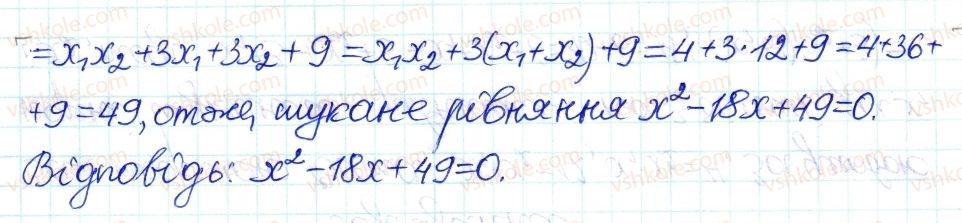 = x₁x₂ + 3x₁ + 3x₂ + 9 = x₁x₂ + 3(x₁ + x₂) + 9 = 4 + 3·12 + 9 = 4 + 36 +
+ 9 = 49, отже, шукане рівняння x² − 18x + 49 = 0.
Відповідь: x² − 18x + 49 = 0.